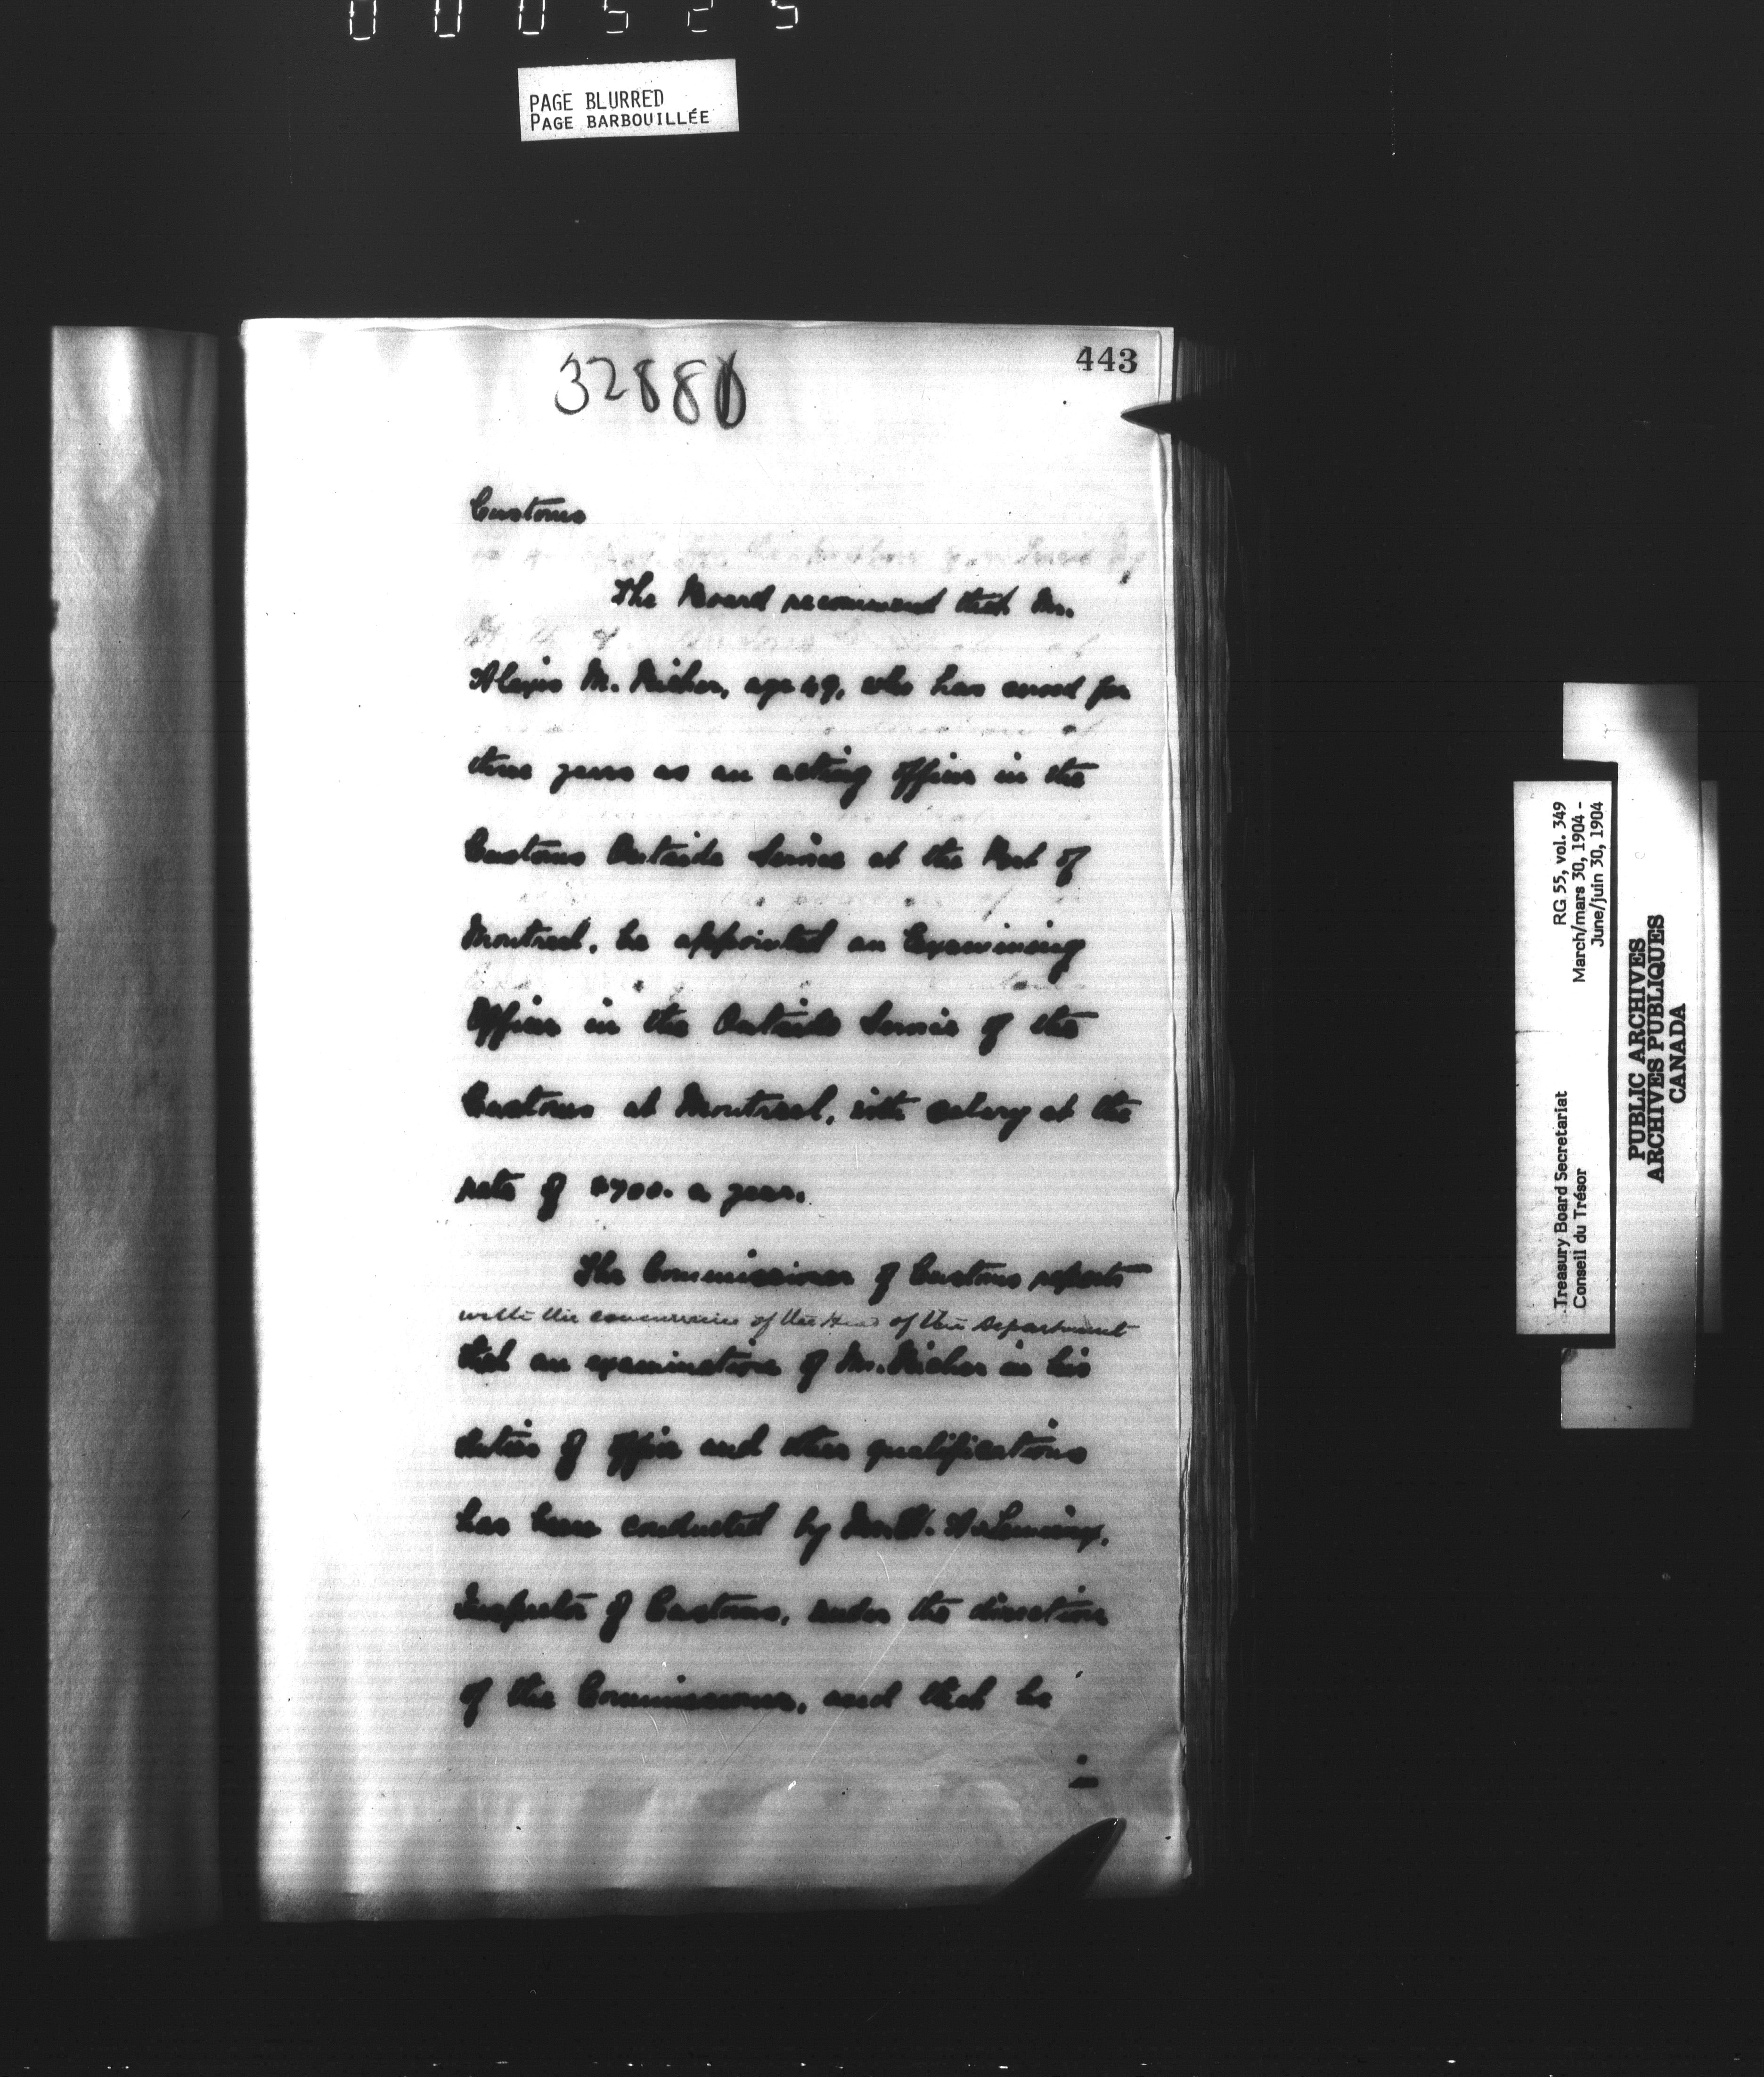 000525
PAGE BLURRED
PAGE BARBOUILLÉE
443
Customs
The Board recommend that Mr.
M. Richer, age 49, who has served for
three years as an acting officer in the
Customs Outside Service at the Port of
Montreal, be appointed an Examining
Officer in the Outside Service of the
Customs at Montreal, with salary at the
rate of $700. a year.
The Commissioner of Customs reports
with the concurrence of the Head of the Department
that an examination of Mr. Richer in his
duties of office and other qualifications
has been conducted by
Inspector of Customs, under the direction
of the Commissioner, and that he
in
Treasury Board Secretariat RG 55, vol. 349
Conseil du Trésor March/mars 30, 1904 -
June/juin 30, 1904
PUBLIC ARCHIVES
ARCHIVES PUBLIQUES
CANADA